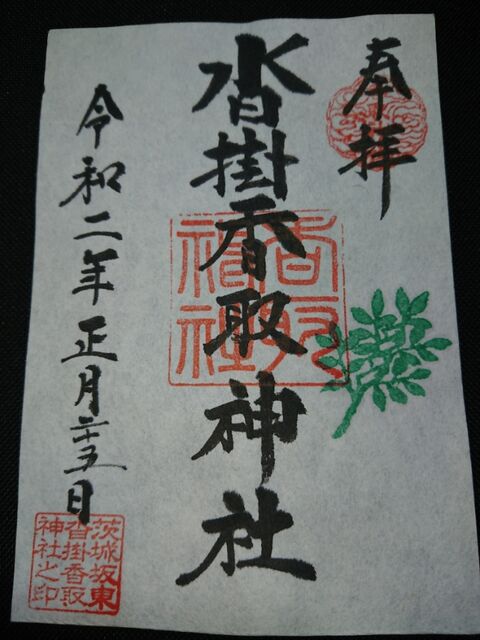 奉拝
沓掛香取神社
香取
神社
令和二年正月二十五日
茨城坂東
沓掛香取
神社之印